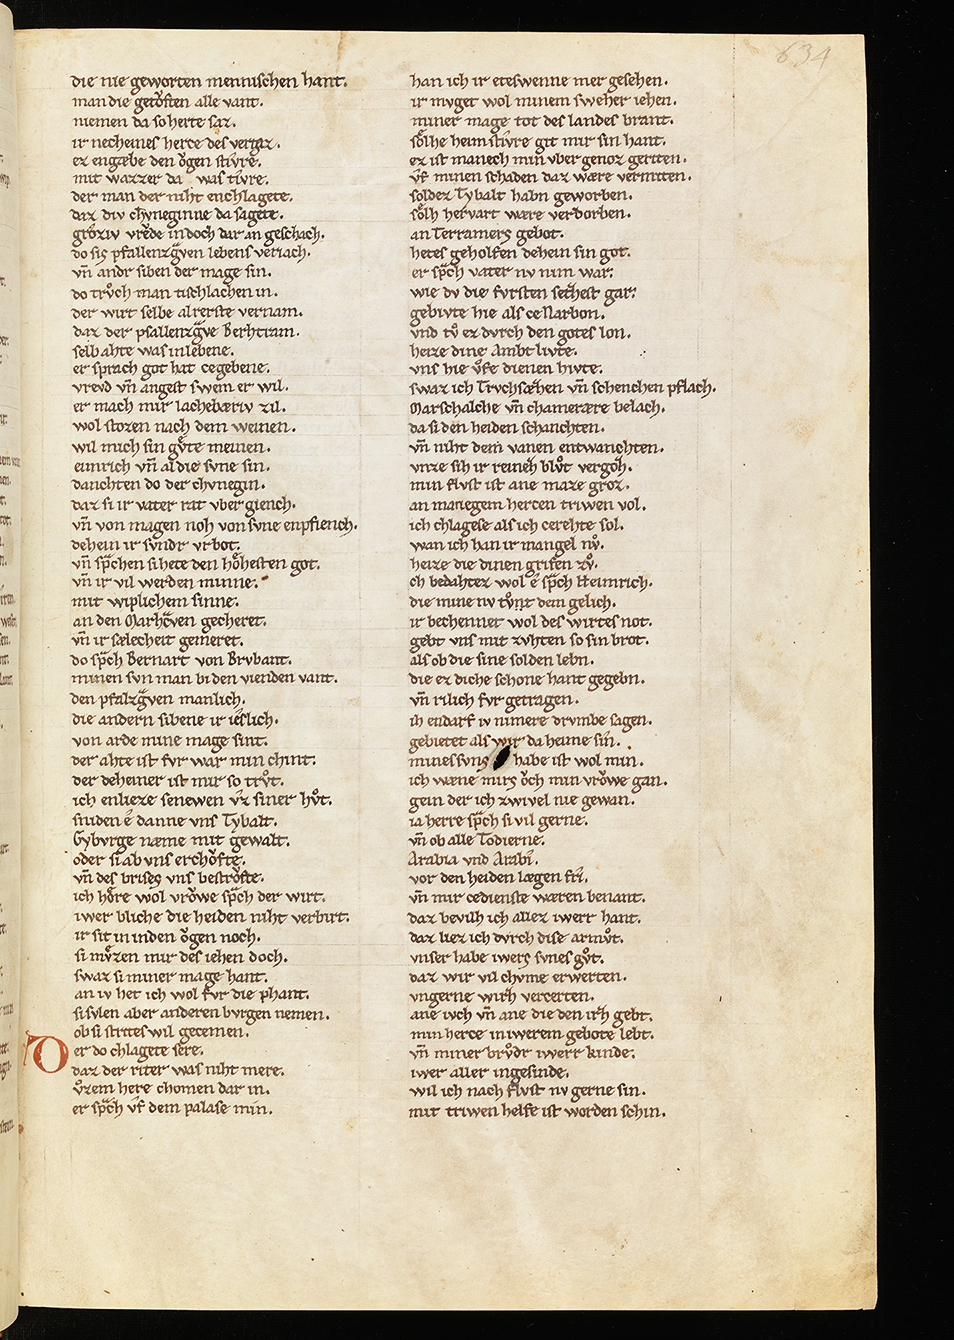 634
die nie geworten mennischen hant.
man die getoͮften alle vant.
niemen da so herte saz.
ir necheines herce des vergaz.
ez engæbe den oͮgen stivͤre.
mit wazzer da was tivͤre.
der man der niht enchlagete.
daz div chvneginne da sagete.
groͤziv vreͮde in doch dar an geschach.
do sis pfallenzgͣven lebens veriach.
vn̄ andr siben der mage sin.
do trvͦch man tischlachen in.
der wirt selbe alrerste vernam.
daz der pfallenzgͣve Berhtram.
selb ahte was in lebene.
er sprach got hat cegebene.
vrevd vn̄ angest swem er wil.
er mach mir lachebæriv zil.
wol stozen nach dem weinen.
wil mich sin gvͤte meinen.
eimrich vn̄ al die svne sin.
danchten do der chvnegin.
daz si ir vater rat vber giench.
vn̄ von magen noh von svne enpfiench.
dehein ir svndr vrbot.
vn̄ spͣchen si hete den hoͤhesten got.
vn̄ ir vil werden minne.
mit wiplichem sinne.
an den Marhcͣven gecheret.
vn̄ ir sælecheit gemeret.
do spͣch Bernart von Brvbant.
minen svn man bi den vienden vant.
den pfalzgͣven manlich.
die andern sibene ir ieslich.
von arde mine mage sint.
der ahte ist fvr war min chint.
der deheiner ist mir so trvͦt.
ich enlieze senewen vͦz siner hvͦt.
sniden ē danne vns Tybalt.
Gybvrge næme mit gewalt.
oder si ab vns erchoͮfte.
vn̄ des brises vns bestroͮfte.
ich hoͤre wol vroͮwe spͣch der wirt.
iwer bliche die heiden niht verbirt.
ir sit in inden oͮgen noch.
si mvͤzen mir des iehen doch.
swaz si miner mage hant.
an iv het ich wol fvr die phant.
si svlen aber anderen bvrgen nemen.
ob si strites wil gecemen.
Der do chlagete sere.
daz der riter was niht mere.
vͦzem here chomen dar in.
er spͣch vͦf dem palase min.
han ich ir eteswenne mer gesehen.
ir mvget wol minem sweher iehen.
miner mage tot des landes brant.
soͤlhe heimstivͤre git mir sin hant.
ez ist manech min vber genoz geriten.
vͦf minen schaden daz wære vermiten.
soldez Tybalt habn geworben.
soͤlh hervart wære verdorben.
an Terramers gebot.
hetes geholfen dehein sin got.
er spͣch vater nv nim war.
wie dv die fvrsten sechest gar.
gebivte hie als ce Narbon.
vnd tvͦ ez dvrch den gotes lon.
heize dine Ambtlivte.
vns hie vͦfe dienen hivte.
swaz ich Trvchsæhen vn̄ schenchen pflach.
Marschalche vn̄ chamerære belach.
da si den heiden schanchten.
vn̄ niht dem vanen entwanchten.
vnze sih ir reineh blvͦt vergoh.
min flvst ist ane maze groz.
an manegem hercen triwen vol.
ich chlagese als ich cerehte sol.
wan ich han ir mangel nvͦ.
heize die dinen grifen zvͦ.
oh bedahtez wol ē spͣch Heimrich.
die mine nv tvͦnt dem gelich.
ir bechennet wol des wirtes not.
gebt vns mit zvhten so sin brot.
als ob die sine solden lebn.
die ez diche schone hant gegebn.
vn̄ rilich fvr getragen.
ih endarf iv nimere drvmbe sagen.
gebietet als wir da heime sin.
mines svns habe ist wol min.
ich wæne mirs oͮch min vroͮwe gan.
gein der ich zwivel nie gewan.
ia herre spͣch si vil gerne.
vn̄ ob alle Todierne.
Arabia vnd Arabi.
vor den heiden lægen fri.
vn̄ mir cedienste wæren benant.
daz bevilh ich allez iwerr hant.
daz liez ich dvrch dise armvͦt.
vnser habe iwers svnes gvͦt.
daz wir vil chvme erwerten.
vngerne wirh vercerten.
ane ivch vn̄ ane die den irh gebt.
min herce in iwerem gebote lebt.
vn̄ miner brvͦdr iwerr kinde.
iwer aller ingesinde.
wil ich nach flvst nv gerne sin.
mit triwen helfe ist worden schin.